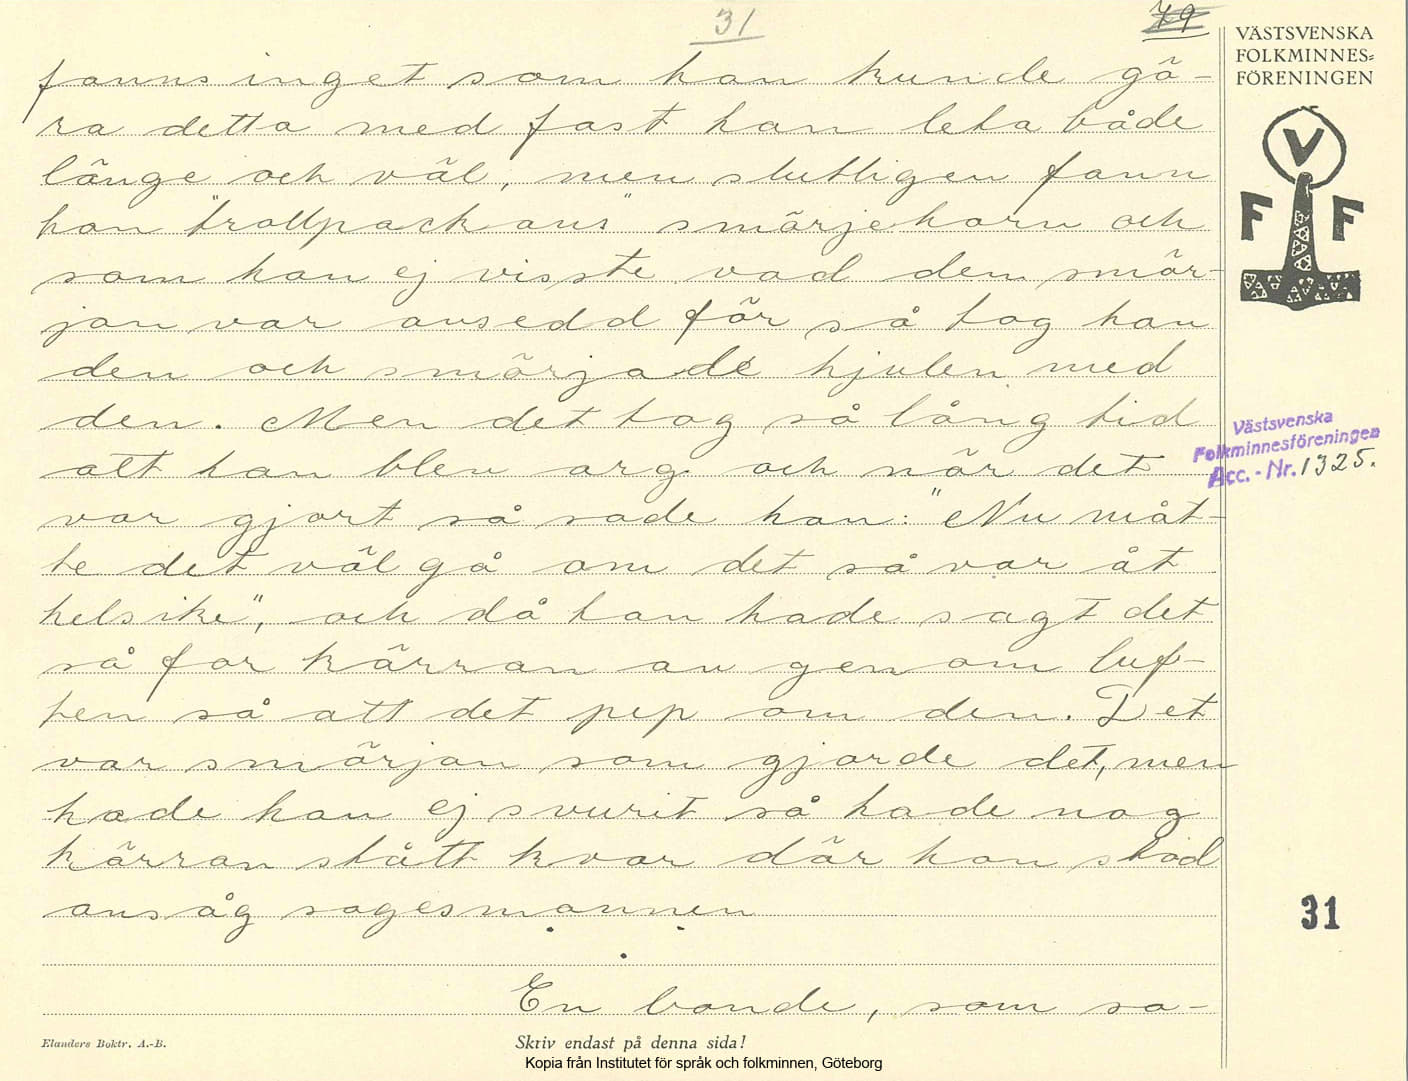 31
79
fanns inget som han kunde gö-
ra detta med fast han leta både
länge och väl, men slutligen fann
han "trollpackans" smörjehorn och
som han ej visste vad den smör-
jan var ansedd för så tog han
den och smörjade hjulen med
den. Men det tog så lång tid
att han blev arg och när det
var gjort så sade han: "Nu måt-
te det väl gå om det så var åt
helsike", och då han hade sagt det
så for kärran av genom luf-
ten så att det pep om den. Det
var smörjan som gjorde det, men
hade han ej svurit så hade nog
kärran stått kvar där han stod
ansåg sagesmannen
En bonde, som sa-
VÄSTSVENSKA
FOLKMINNES=
FÖRENINGEN
V
F F
Västsvenska
Folkminnesföreningen
Acc. - Nr. 1325.
31
Elanders Boktr. A.-B.
Skriv endast på denna sida!
Kopia från Institutet för språk och folkminnen, Göteborg